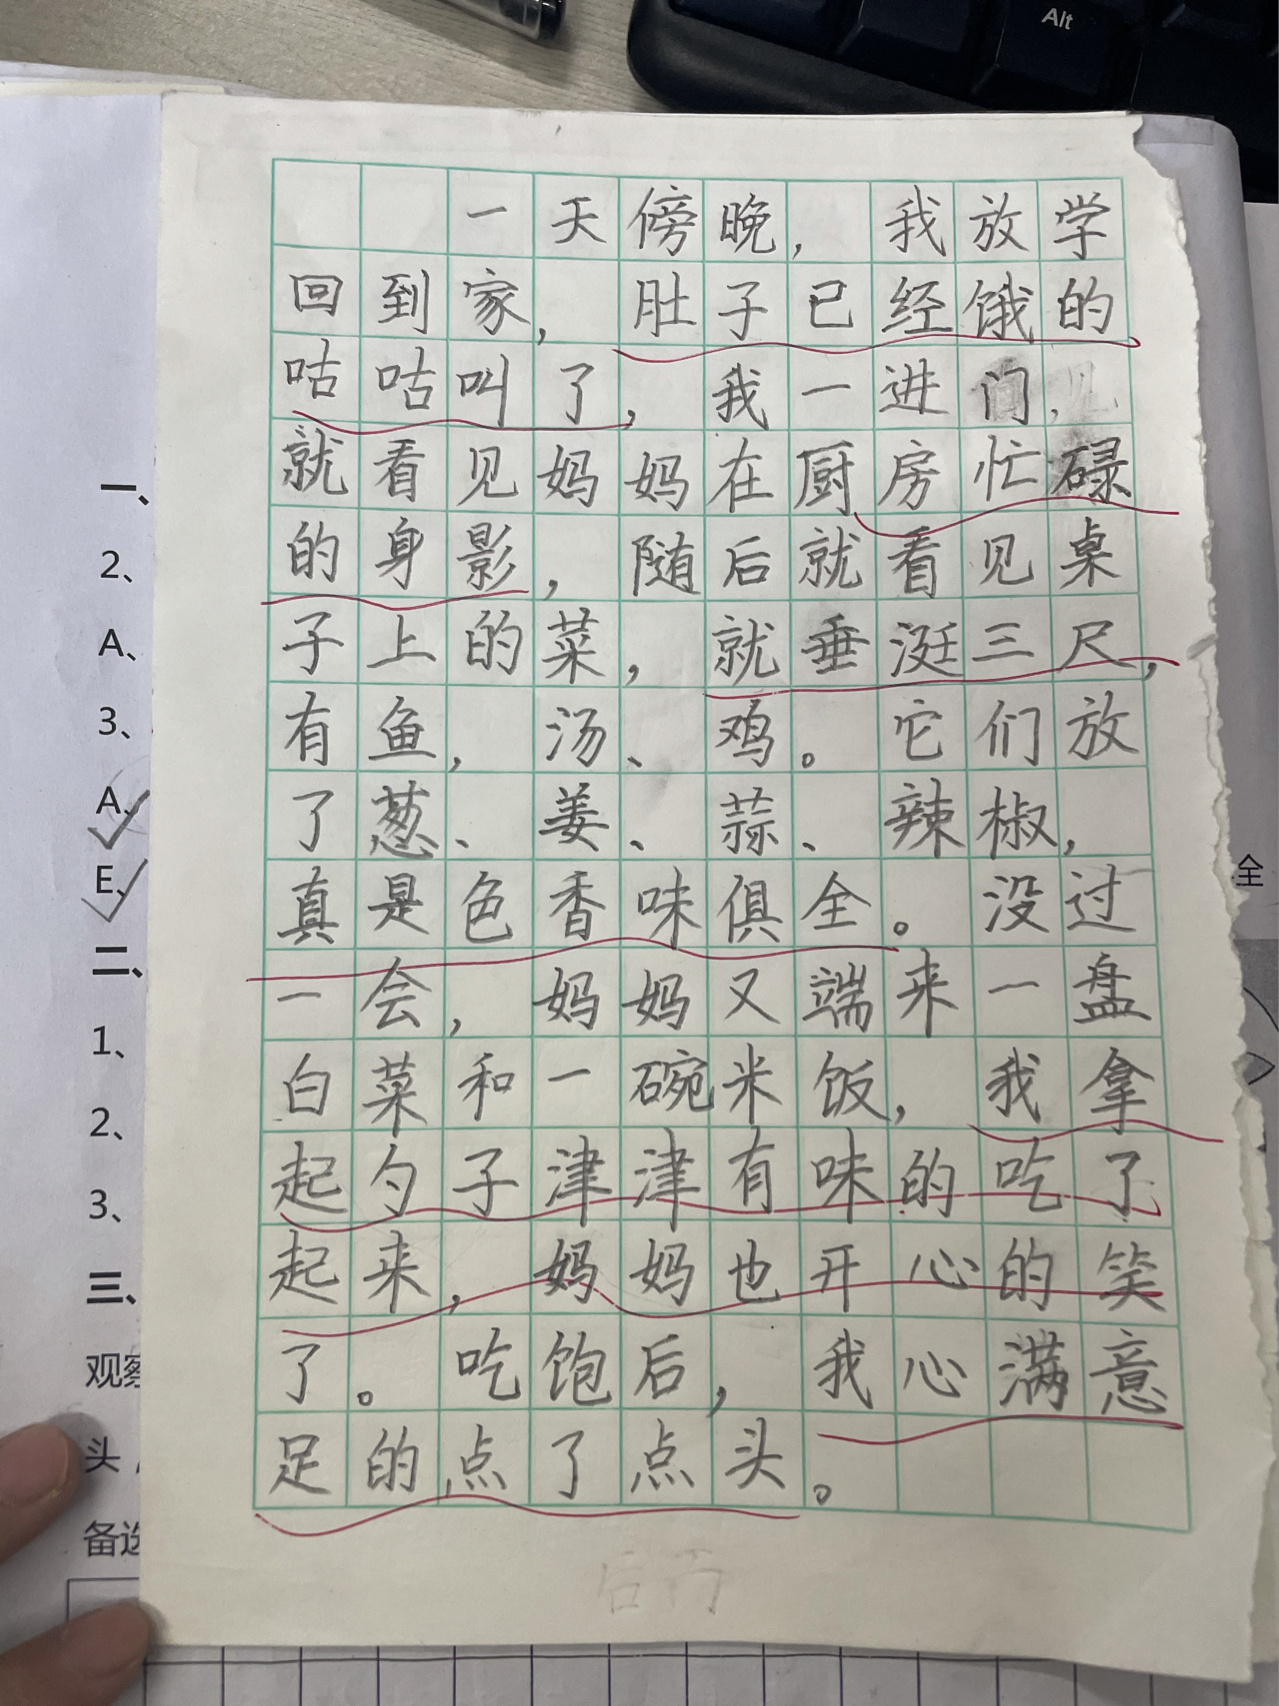 Alt
一天傍晚，我放学
回到家，肚子已经饿的
咕咕叫了，我一进门，
就看见妈妈在厨房忙碌
的身影，随后就看见桌
子上的菜，就垂涎三尺，
有鱼，汤、鸡。它们放
了葱、姜、蒜、辣椒，
真是色香味俱全。没过
一会，妈妈又端来一盘
白菜和一碗米饭，我拿
起勺子津津有味的吃了
起来，妈妈也开心的笑
了。吃饱后，我心满意
足的点了点头。
一、
2、
A、
3、
A、
E、
二、
1、
2、
3、
三、
观察
头，
备选
全